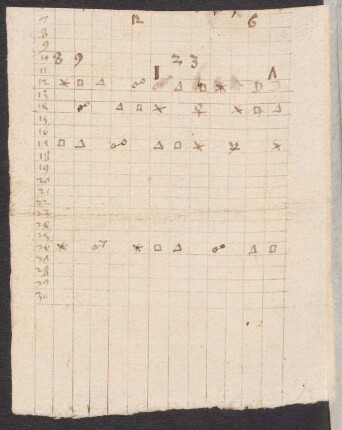 7 12 6
8
9
10 8 9 2 3
11
12 ⚹ □ △ ☍ △ □ ⚹ D
13
14 ☍ △ □ ⚹ ♀ ⚹ □ △
15
16
17 □ △ ☍ △ □ ⚹ ☿ ⚹
18
19
20
21
22
23
24
25
26 ⚹ ☍ ⚹ □ △ ☍ △ □
27
28
29
30